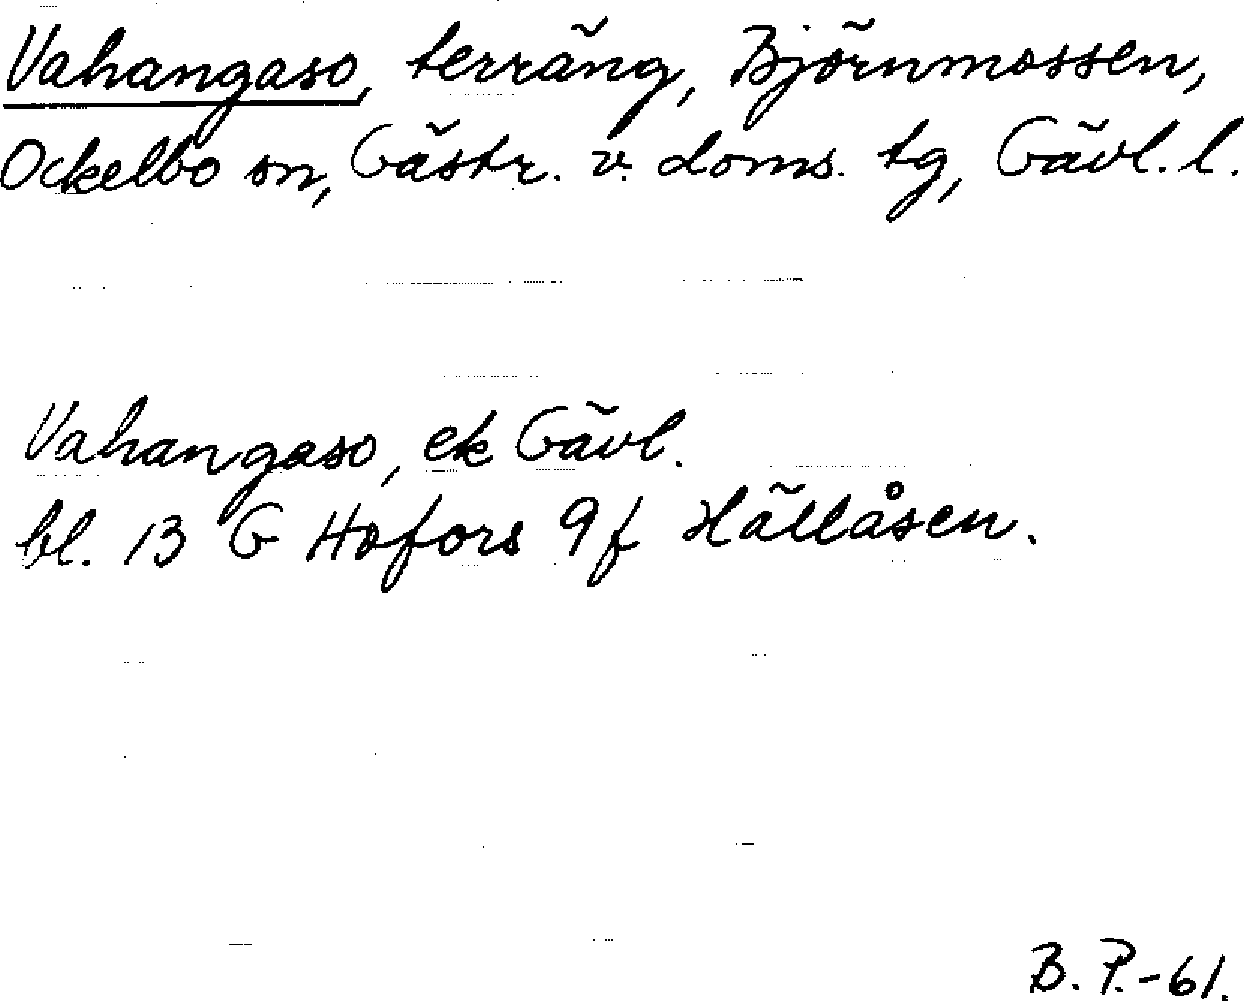 Vahangaso, terräng, Björnmossen,
Ockelbo sn, Gästr. v. doms. tg, Gävl. l.
Vahangaso, ek Gävl.
bl. 13 G Hofors 9f Hällåsen.
B. P. -61.